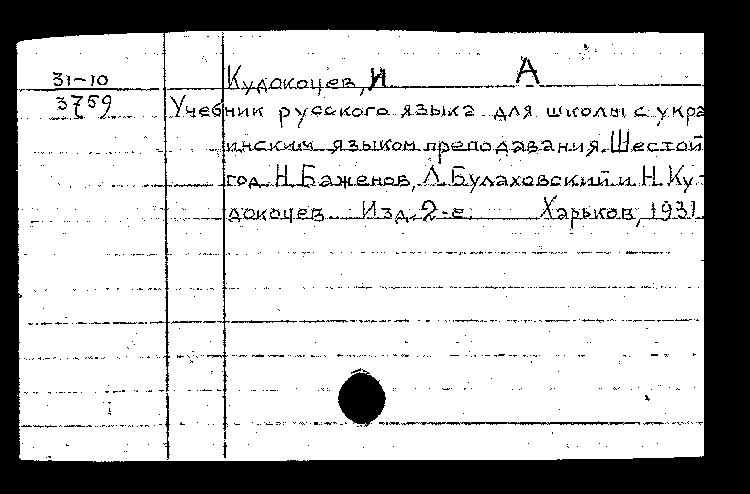 31-10 Кудокоцев, И А
3759 Учебник русского языка для школы с укра
инским языком преподавания. Шестой
год. Н. Баженов, Л. Булаховский и Н. Ку-
докоцев. Изд. 2-е. Харьков, 1931.